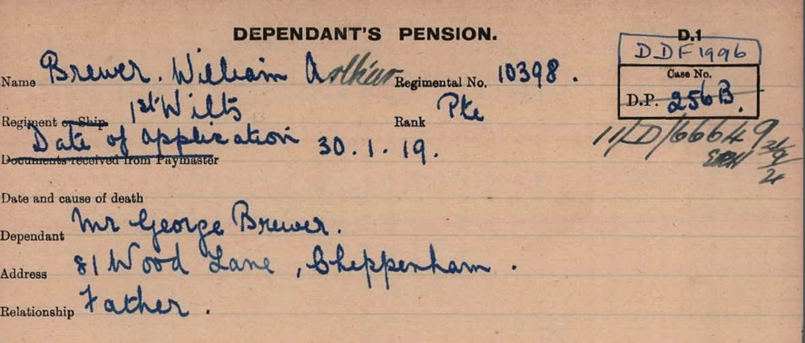 DEPENDANT'S PENSION.
D.1
DDF1996
Name Brewer. William Arthur Regimental No. 10398.
Case No.
D.P. 256B.
Regiment or Ship 1st Wilts Rank Pte
11/D/66649
Date of application 30.1.19.
Documents received from Paymaster
Date and cause of death
Dependant Mr George Brewer.
Address 81 Wood Lane, Cheppenham.
Relationship Father.